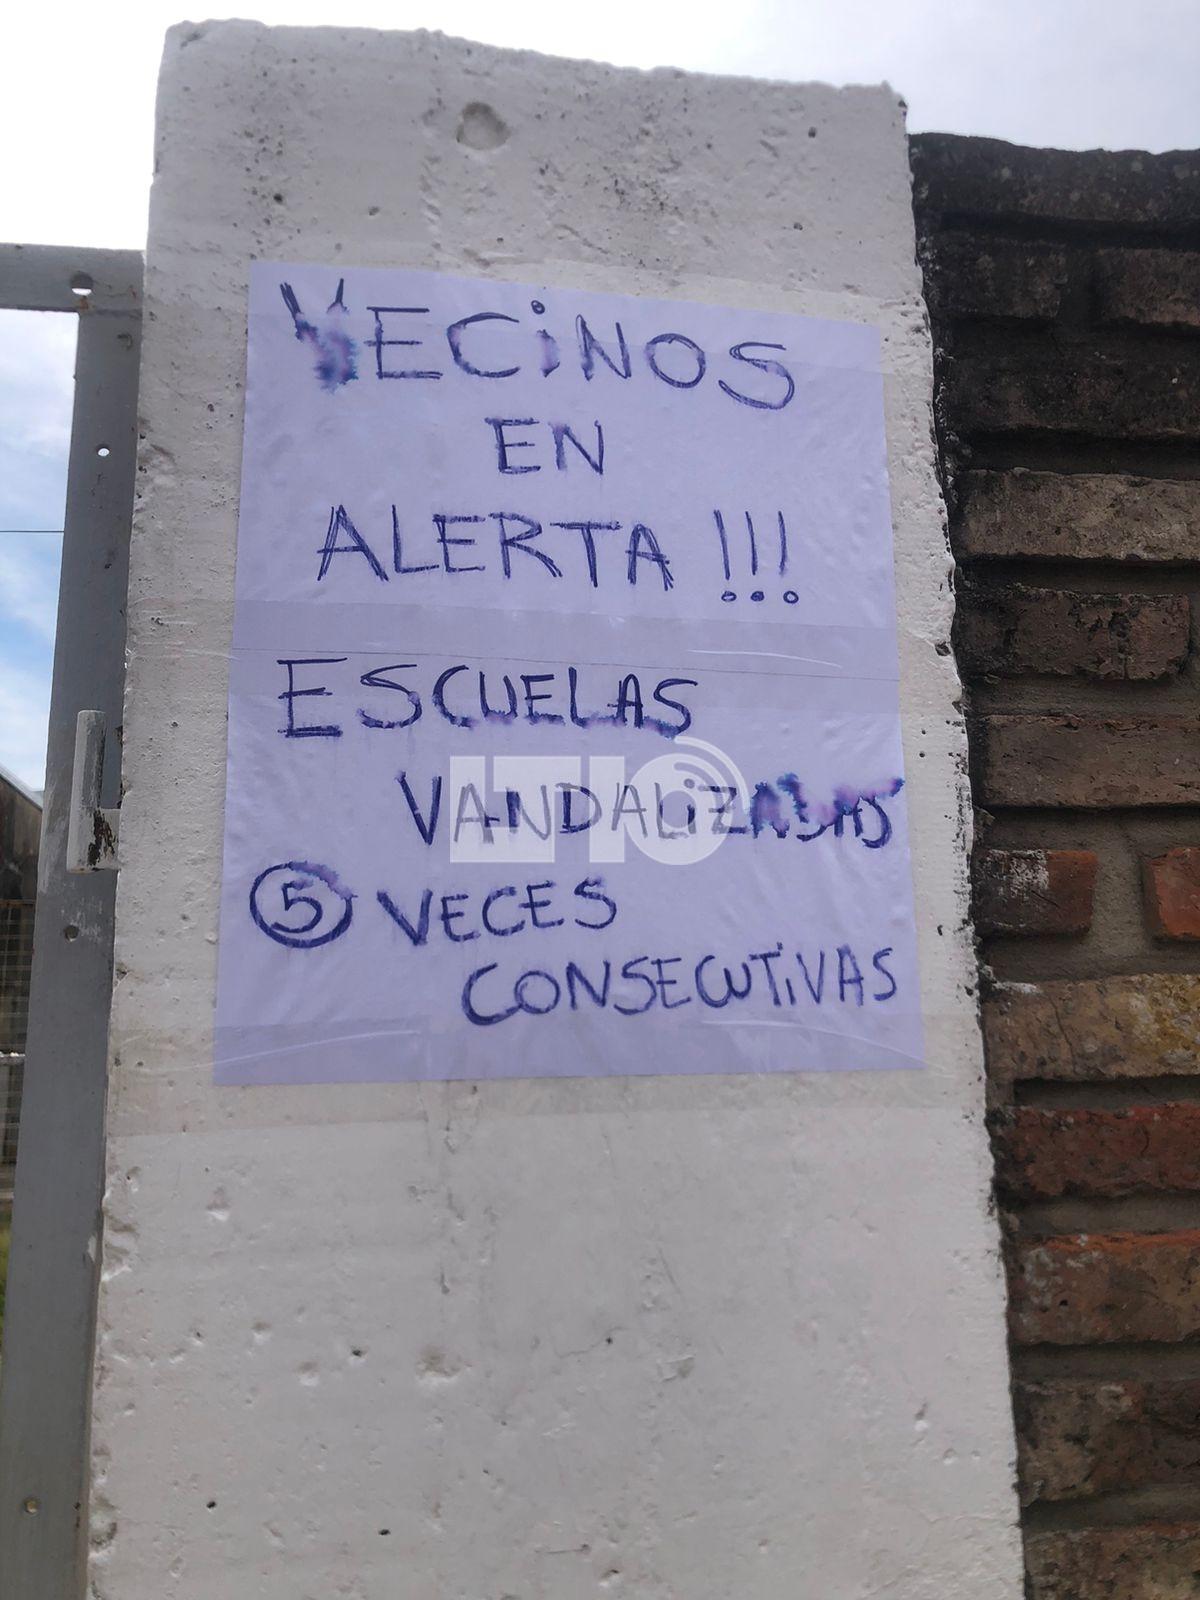 VECINOS
EN
ALERTA !!!
ESCUELAS
VANDALIZADAS
5 VECES
CONSECUTIVAS